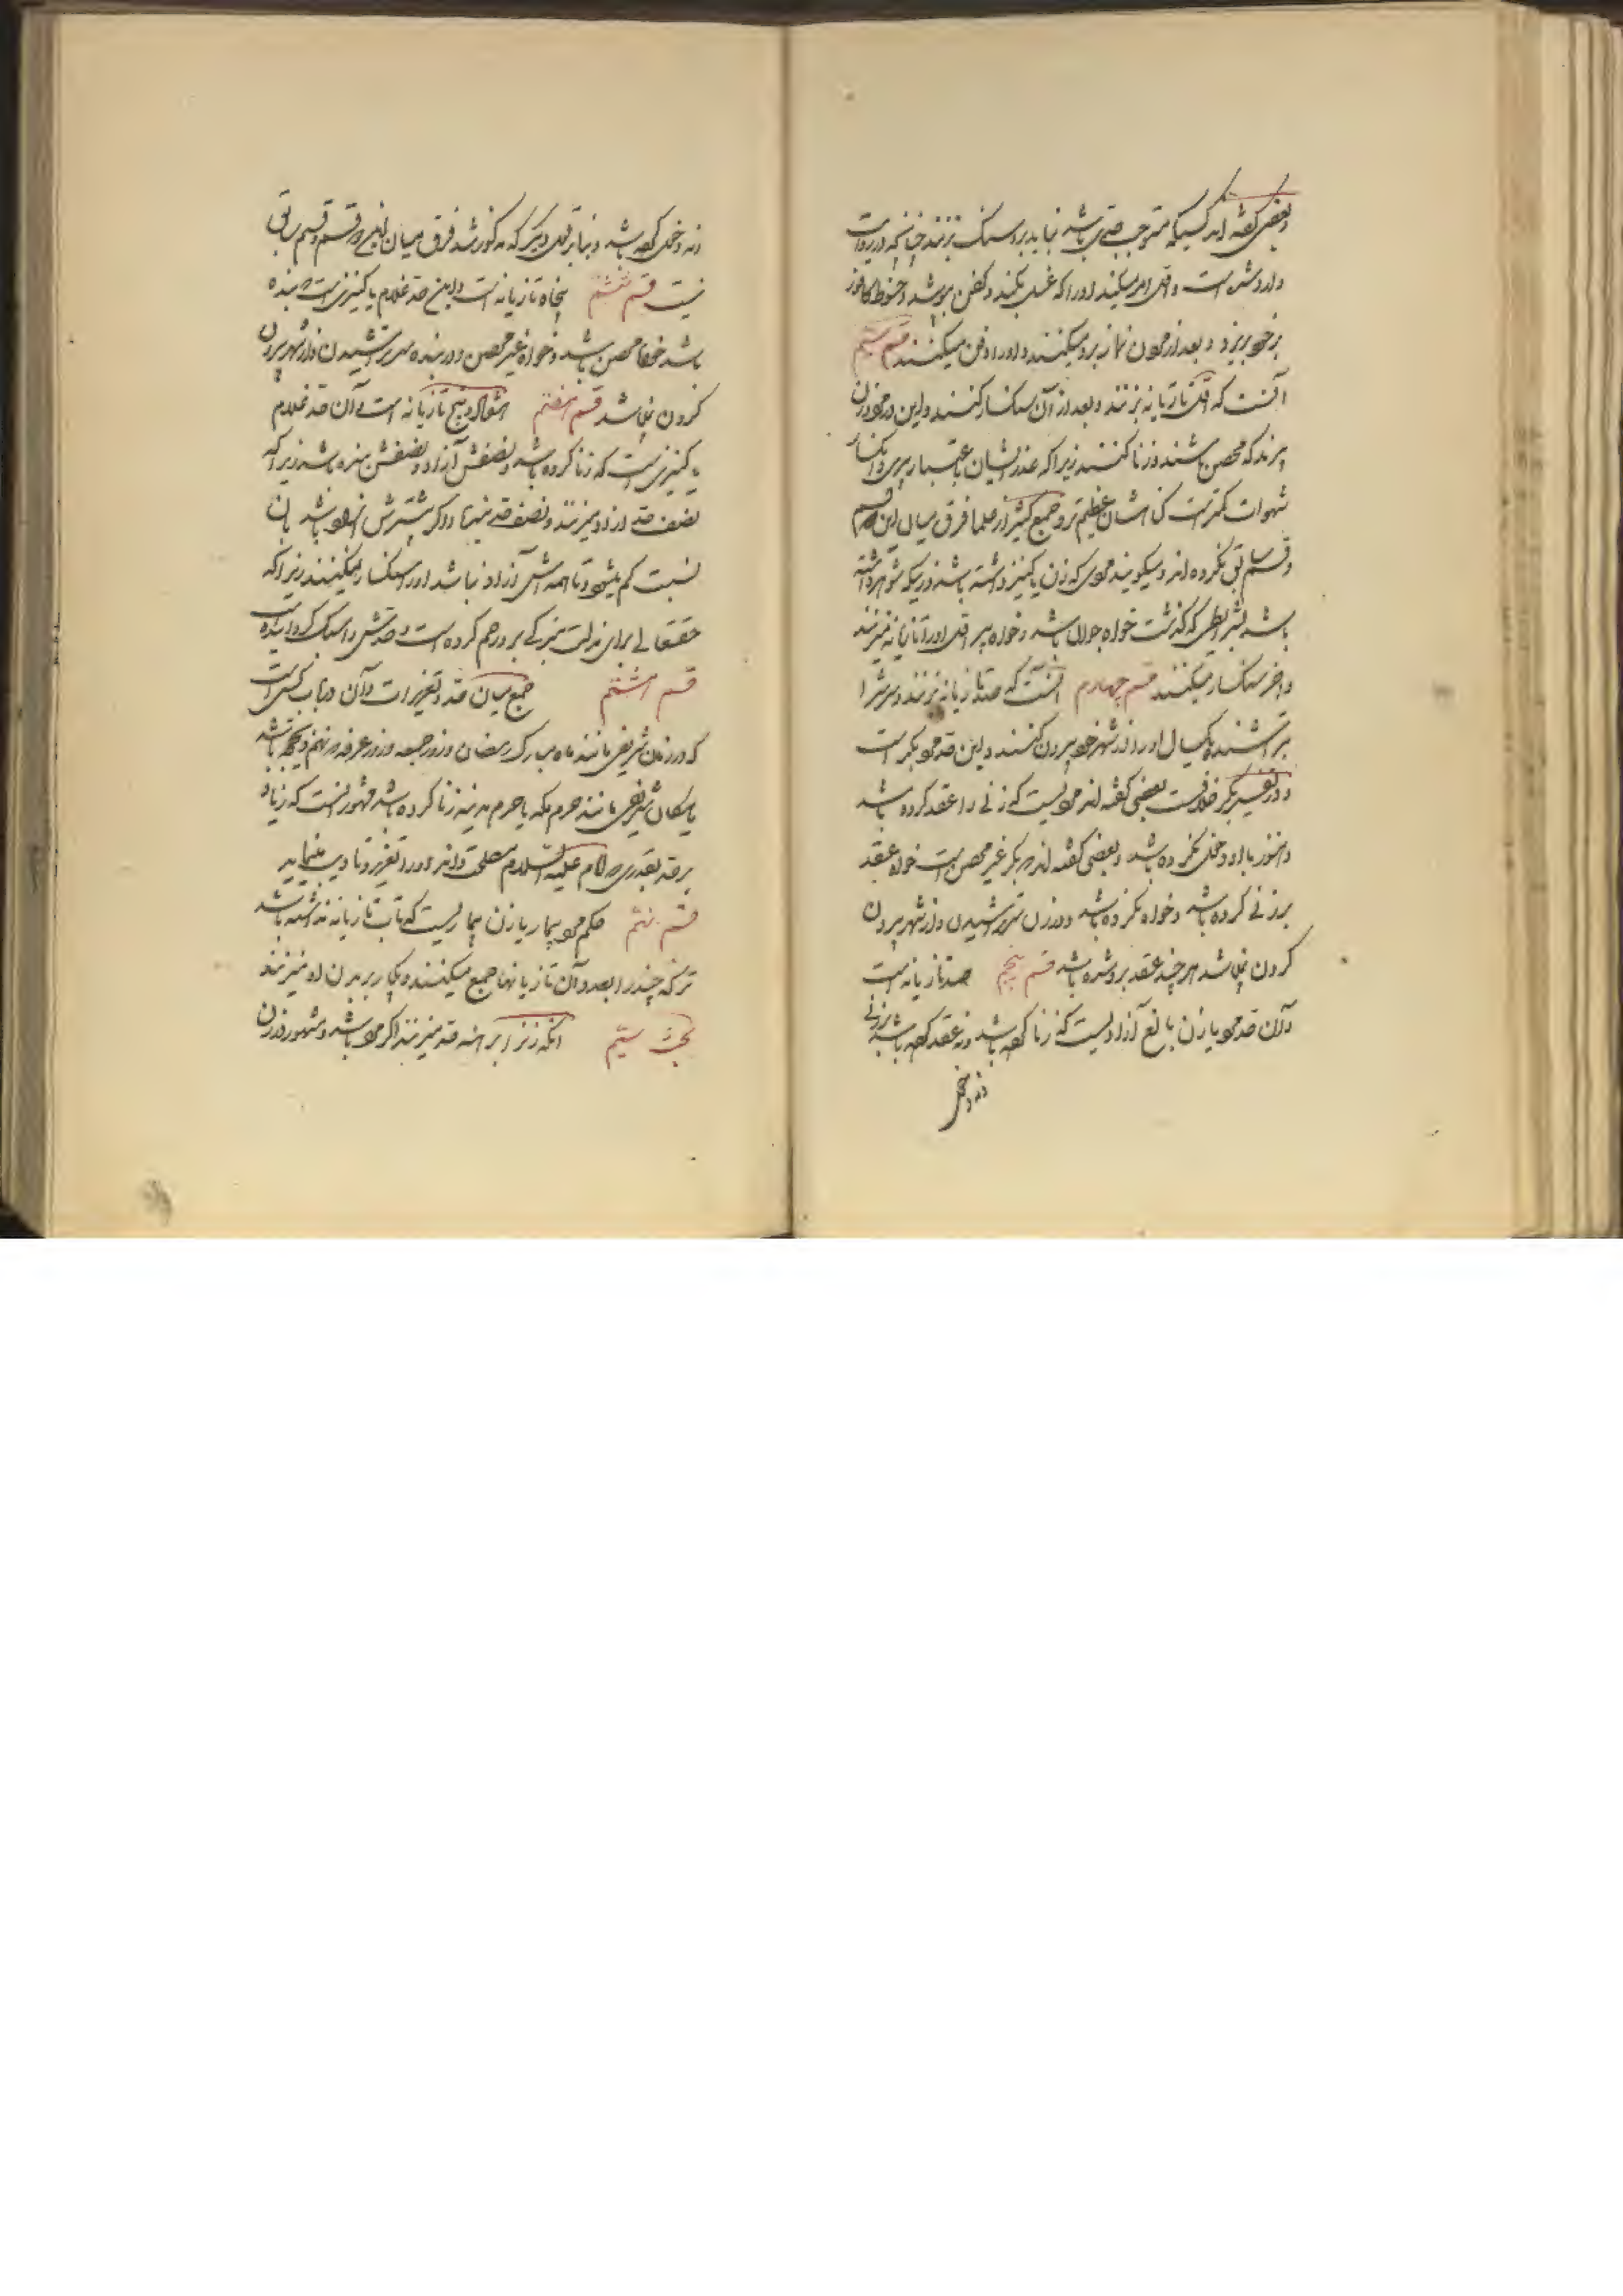 و بعضی گفته اند کسیکه مستوجب حدی باشد نباید برو سنگ بزند چنانکه در روایت
وارد شده است و اول امر میکنند او را که غسل بکند و کفن بپوشد و حنوط کافور
بر خود بریزد و بعد از مردن نماز برو میکنند و او را دفن میکنند قسم سیم
آنست که اول تازیانه بزنند و بعد از آن سنگسار کنند و این در مرد و زن
پیرند که محصن باشند و زنا کنند زیرا که عذر ایشان باعتبار پیری و انکسار
شهوات کمتر است گناه ایشان عظیم تر و جمع کثیر از علما فرق میان این قسم
و قسم سابق نکرده اند و میگویند مردی که زن یا کنیز داشته باشد و زنیکه شوهر داشته
باشد بشرایطی که گذشت خواه جوان باشد و خواه پیر اول او را تازیانه میزنند
و آخر سنگسار میکنند قسم چهارم آنست که صد تازیانه بزنند و سرش را
بتراشند و یکسال او را از شهر خود بیرون کنند و این حد مرد بکر است
و در تفسیر بکر خلافست بعضی گفته اند مردیست که زنی را عقد کرده باشد
و هنوز با او دخول نکرده باشد و بعضی گفته اند بکر غیر محصن است خواه عقد
بر زنی کرده باشد و خواه نکرده باشد و در زن سر تراشیدن و از شهر بیرون
کردن نمیباشد هر چند عقد برو شده باشد قسم پنجم صد تازیانه است
و آن حد مرد یا زن بالغ آزادیست که زنا کرده باشد و نه عقد کرده باشد بر زنی
و نه دخول
و نه دخول کرده باشد و بنا بر قول دیگر که مذکور شد فرق میان این قسم و قسم سابق
نیست قسم ششم پنجاه تازیانه است و این حد غلام یا کنیزیست که بنده
باشد خواه محصن باشد و خواه غیر محصن و در بنده سر تراشیدن و از شهر بیرون
کردن نمیباشد قسم هفتم هفتاد و پنج تازیانه است و آن حد غلام
یا کنیزیست که زنا کرده باشد و نصفش آزاد و نصفش بنده باشد زیرا که
نصف حد آزاد میزنند و نصف حد بنده و اگر بیشترش آزاد باشد بآن
نسبت کم میشود و تا همه اش آزاد نباشد او را سنگسار نمیکنند زیرا که
حقتعالی برای مذلت بندگی برو رحم کرده است و حدش را سبک گردانیده
قسم هشتم جمع میان حد و تعزیرات و آن در باب کسی است
که در زمان شریفی مانند ماه مبارک رمضان و روز جمعه و روز عرفه
یا مکان شریفی مانند حرم مکه یا حرم مدینه زنا کرده باشد مشهور آنست که زیاده
بر حد بقدری که امام علیه السلام مصلحت داند او را تعزیر و تادیب مینماید
قسم نهم حکم مرد بیمار یا زن بیماریست که تاب تازیانه نداشته باشد
ترکه چند را بعدد آن تازیانها جمع میکنند و یکبار بر بدن او میزنند
بحث سیم آنکه زنرا برهنه حد میزنند اگر مرد باشد و مشهور در زن